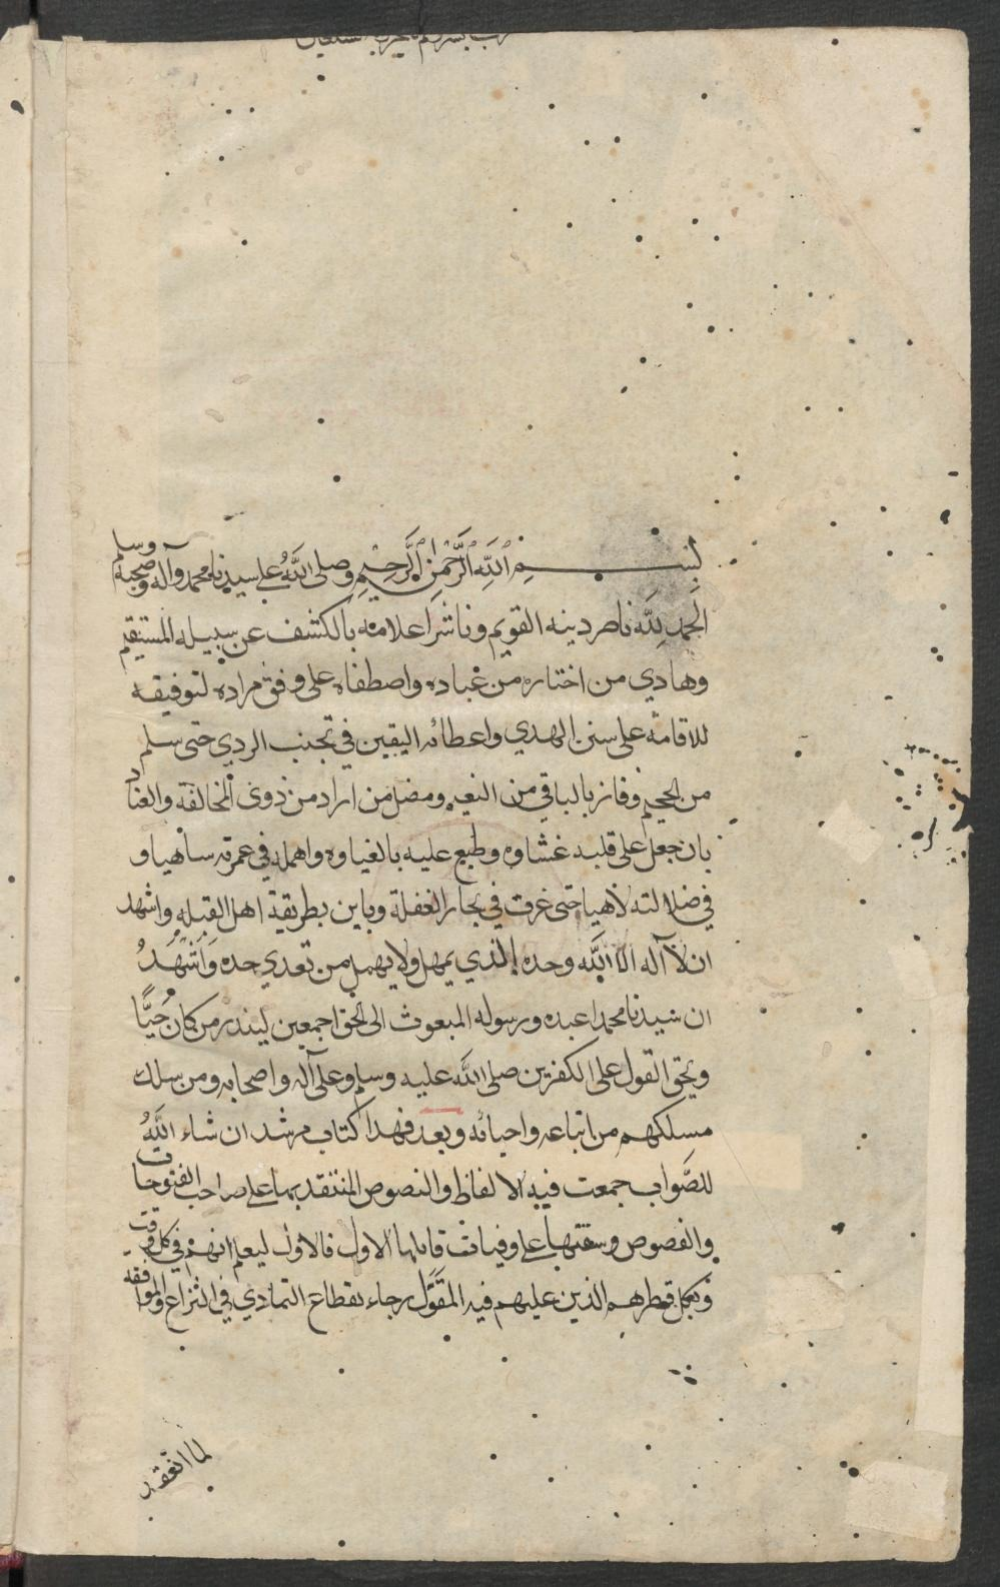 بسم الله الرحمن الرحيم وصلى الله على سيدنا محمد وآله وصحبه وسلم
الحمد لله ناصر دينه القويم وناشر اعلامه بالكشف عن سبيله المستقيم
وهادي من اختاره من عباده واصطفاه على وفق مراده لتوفيقه
للاقامة على سنن الهدي واعطائه اليقين في تجنب الردي حتى سلم
من الجحيم وفاز بالباقي من النعيم ومضل من اراد من ذوى المخالفة والعناد
بان جعل على قلبه غشاوه وطبع عليه بالغباوه واهمله في غمرته ساهيا و
في ضلالته لاهيا حتى غرق في بحار الغفلة وباين بطريقة اهل القبله واشهد
ان لا آله الا الله وحده الذي يمهل ولا يهمل من تعدي حده وَاَشْهَدُ
ان سيدنا محمدا عبده ورسوله المبعوث الى الخلق اجمعين لينذر من كان حَيًّا
ويحق القول على الكفرين صلى الله عليه وسلم وعلى آله واصحابه ومن سلك
مسلكهم من اتباعه واحبائه وبعد فهذا كتاب مرشد ان شاء اللهُ
للصَّواب جمعت فيه الالفاظ والنصوص المنتقد بها على صاحب الفتوحات
والفصوص وسقتها على وفيات قايلها الاول فالاول ليعلم انهم في كل وقت
وبكل قطر هم الذين عليهم فيه المقَوَّل رجاء نقطاع التمادي في النزاع والموافقه
لما انعقد